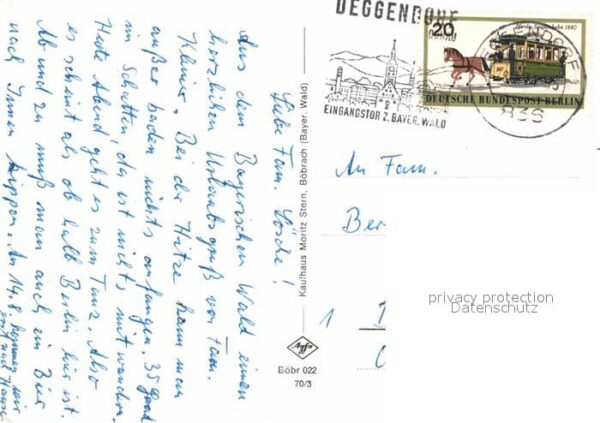 Liebe Fam. Lösche!
Aus dem Bayerischen Wald einen
herzlichen Urlaubsgruß von Fam.
Klauer. Bei der Hitze kann man
außer baden nichts anfangen. 35 Grad
im Schatten, da ist nichts mit wandern.
Heute Abend geht es zum Tanz. Also
es scheint als ob halb Berlin hier ist.
Ab und zu muß man auch ein Bier
nach Innen kippen. An 14.8 kommen wir
nach Hause
Kaufhaus Moritz Stern, Böbrach (Bayer. Wald)
Agfa
Böbr 022
70/3
DEGGENDORF
DONAU
EINGANGSTOR Z. BAYER. WALD
DEGGENDORF
836
20
1880
DEUTSCHE BUNDESPOST BERLIN
An Fam.
Ber
1
privacy protection
Datenschutz